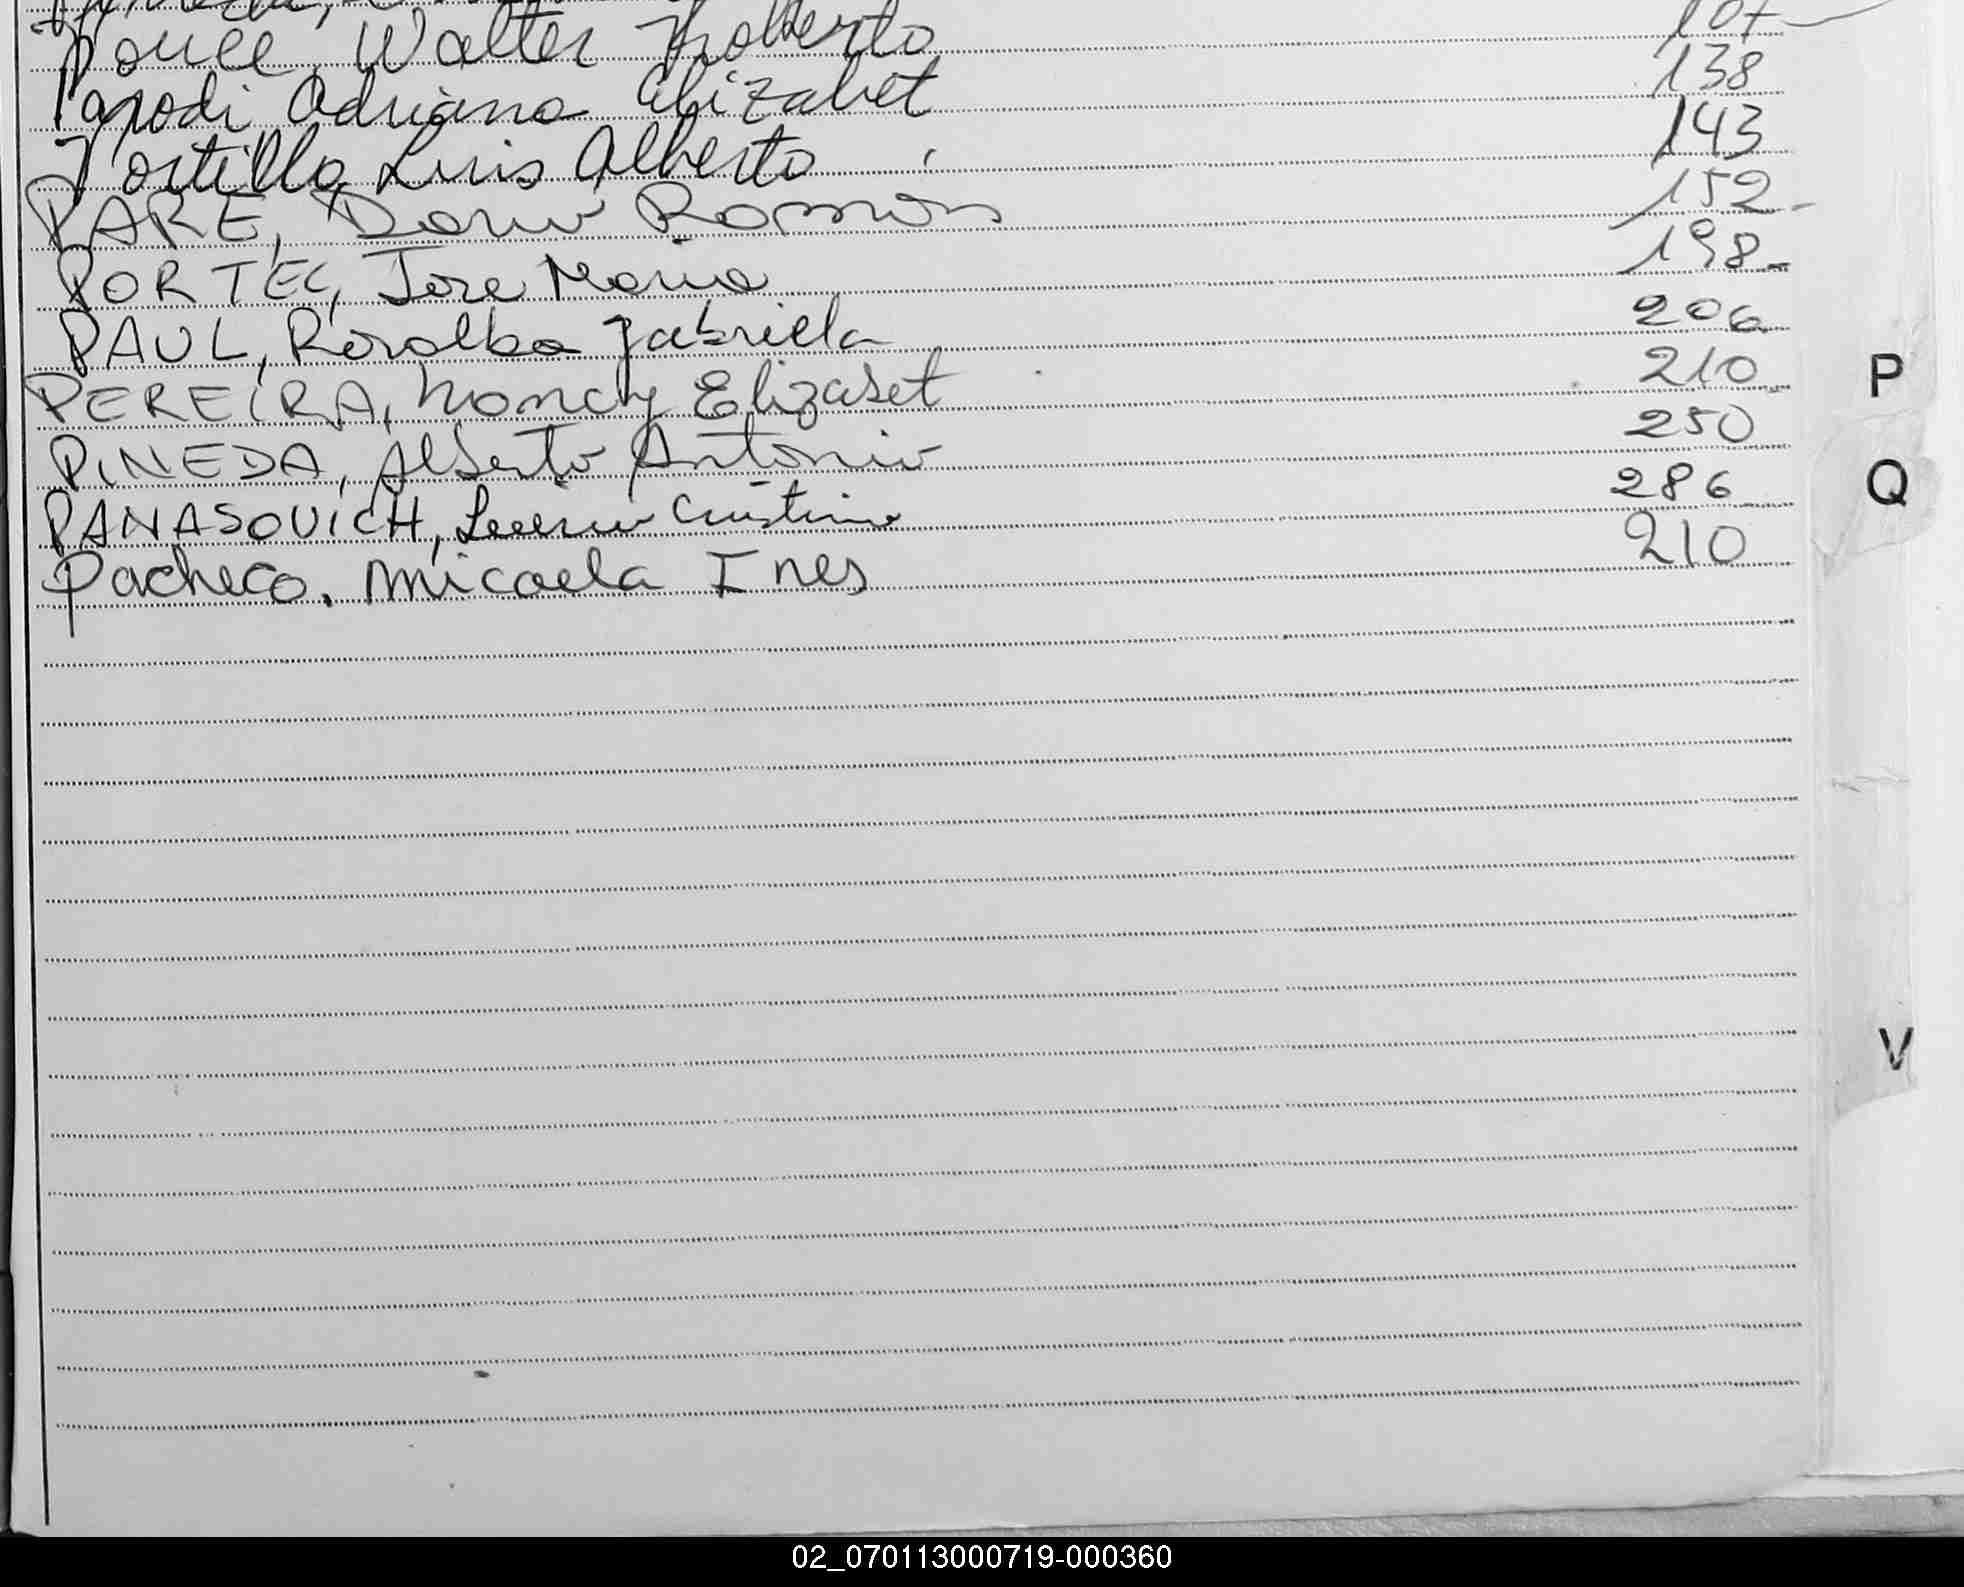 Ponce, Walter Roberto 107
Parodi Adriana Elizabet 138
Portillo, Luis Alberto 143
PARE, Dario Ramón 152-
PORTEL, Jose Maria 198-
PAUL, Rosalba Gabriela 206
PEREIRA, Nancy Elizabet 210
PINEDA, Alberto Antonio 250
PANASOVICH, Cristina 286
Pacheco. Micaela Ines 210
P
Q
V
02_070113000719-000360